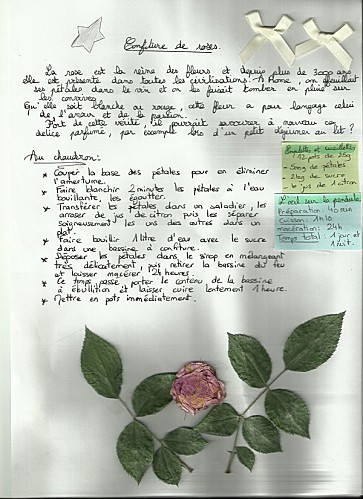 Confiture de roses.
La rose est la reine des fleurs et depuis plus de 3000 ans
elle est présente dans toutes les civilisations. A Rome, on effeuillait
ses pétales dans le vin et on les faisait tomber en pluie sur
les convives.
Qu'elle soit blanche ou rouge, cette fleur a pour langage celui
de l'amour et de la passion.
Fort de cette vérité, il pourrait savourer à nouveau ce
délice parfumé, par exemple lors d'un petit déjeuner au lit ?
Au chaudron:
* Couper la base des pétales pour en éliminer
l'amertume.
* Faire blanchir 2 minutes les pétales à l'eau
bouillante, les égoutter.
* Transférer les pétales dans un saladier, les
arroser de jus de citron puis les séparer
soigneusement les uns des autres dans un
plat.
* Faire bouillir 1 litre d'eau avec le sucre
dans une bassine à confiture.
* Déposer les pétales dans le sirop en mélangeant
très délicatement, puis retirer la bassine du feu
et laisser macérer 24 heures.
* Le temps passé porter le contenu de la bassine
à ébullition et laisser cuire lentement 1 heure.
* Mettre en pots immédiatement.
12 pots de 25g
500g de pétales
2kg de sucre
le jus de 1 citron
L'œil sur la pendule
Préparation: 45 min
Cuisson: 1h10
macération: 24h
Temps total: 1 jour et
1 nuit.